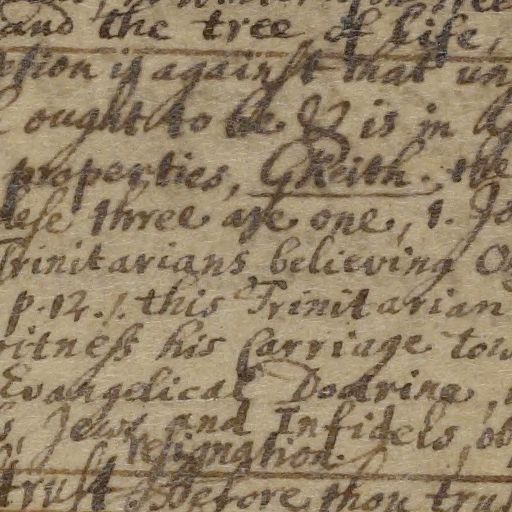 and the tree of life,
is against that
ought to be & is in
properties, GKeith. the
three are one, 1. Jo
Trinitarians believing
p. 12. 1. this Trinitarian
his Carriage tow
Evangelical Doctrine,
Jews and Infidels, ob
resignation.
trust Before thou trus